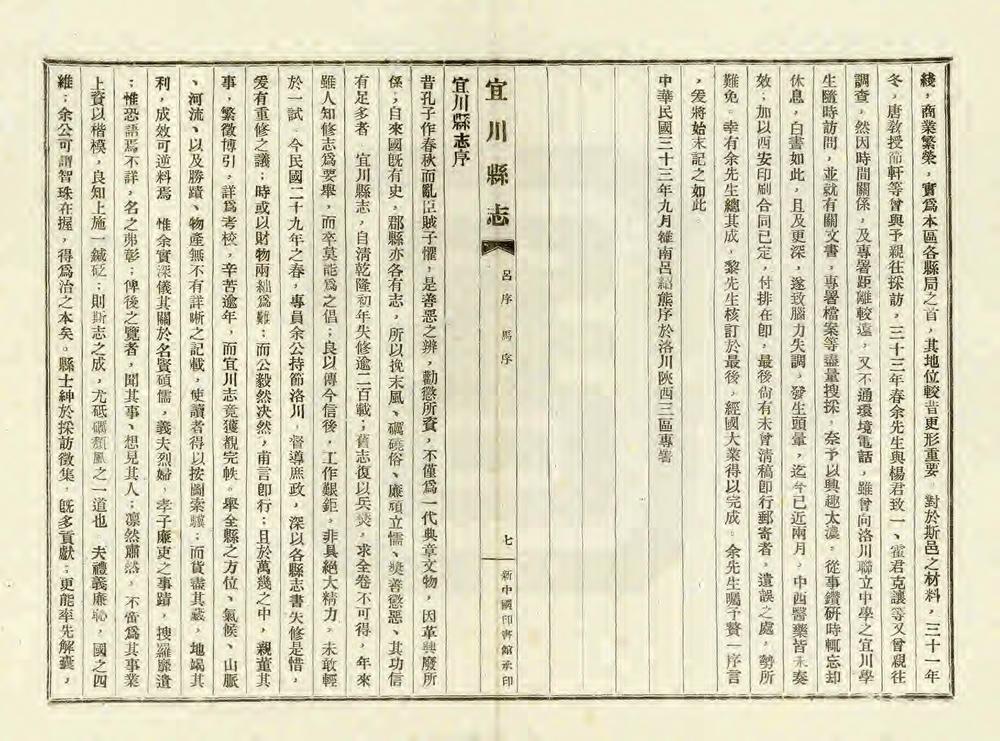 綫，商業繁榮，實爲本區各縣局之首，其地位較昔更形重要　對於斯邑之材料，三十一年
冬，唐敎授節軒等曾與予親往採訪，三十三年春余先生與楊君致一、霍君克讓等又曾親往
調查，然因時間關係，及專署距離較遠，又不通環境電話，雖曾向洛川聯立中學之宜川學
生隨時訪問，並就有關文書，專署檔案等盡量搜採，奈予以興趣太濃，從事鑽研時輒忘却
休息，白晝如此，且及更深，遂致腦力失調，發生頭暈，迄今已近兩月，中西醫藥皆未奏
效；加以西安印刷合同已定，付排在卽，最後尙有未曾清稿卽行郵寄者，遺誤之處，勢所
難免。幸有余先生總其成，黎先生核訂於最後，經國大業得以完成。余先生囑予贅一序言
，爰將始末記之如此。
中華民國三十三年九月雒南呂紹熊序於洛川陝西三區專署
宜川縣志
呂序　馬序
七
新中國印書館承印
宜川縣志序
昔孔子作春秋而亂臣賊子懼，是善惡之辨，勸懲所資，不僅爲一代典章文物，因革興廢所
係；自來國旣有史，郡縣亦各有志，所以挽末風、礪磽俗、廉頑立懦、獎善懲惡、其功信
有足多者　宜川縣志，自清乾隆初年失修逾二百載；舊志復以兵燹，求全卷不可得，年來
雖人知修志爲要舉，而卒莫能爲之倡；良以傳今信後，工作艱鉅。非具絕大精力，未敢輕
於一試　今民國二十九年之春，專員余公持節洛川，督導庶政，深以各縣志書失修是惜，
爰有重修之議；時或以財物兩絀爲難；而公毅然决然，甫言卽行；且於萬幾之中，親董其
事，繁徵博引，詳爲考校，辛苦逾年，而宜川志竟獲覩完帙。舉全縣之方位、氣候、山脈
、河流、以及勝蹟、物產無不有詳晰之記載，使讀者得以按圖索驥；而貨盡其藏，地竭其
利，成效可逆料焉　惟余實深儀其關於名賢碩儒，義夫烈婦，孝子廉吏之事蹟，搜羅靡遺
；惟恐語焉不詳，名之弗彰；俾後之覽者，聞其事、想見其人；凛然肅然，不啻爲其事業
上資以楷模，良知上施一鍼砭；則斯志之成，尤砥礪頹風之一道也　夫禮義廉恥，國之四
維；余公可謂智珠在握，得爲治之本矣。縣士紳於採訪徵集，旣多貢獻；更能率先解囊，